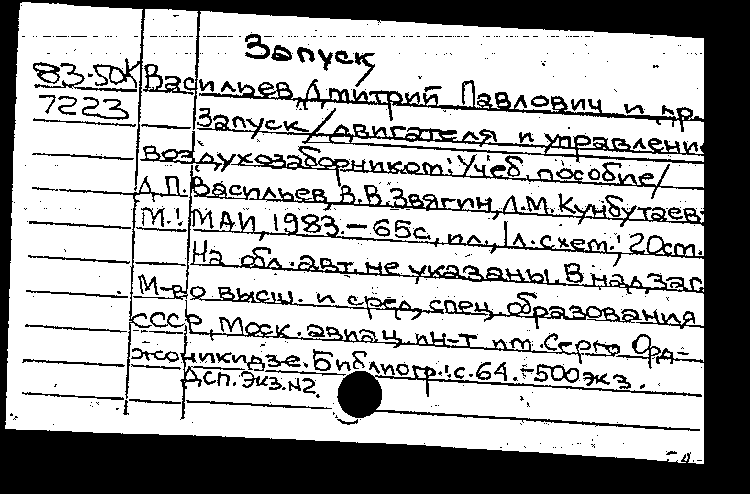 Запуск
83-50К Васильев, Дмитрий Павлович и др.
7223 Запуск двигателя и управлени
воздухозаборником: Учеб. пособие/
Д.П. Васильев, В.В. Звягин, Л.М. Кунбутаев.
М.: МАИ, 1983. - 65с, ил., 1 л. схем.; 20см.
На обл. авт. не указаны. В надзаг
М-во высш. и сред, спец. образования
СССР, Моск. авиац ин-т им. Серго Орд-
жоникидзе. Библиогр.: с. 64. - 500 экз.
ДСП. Экз. N2.